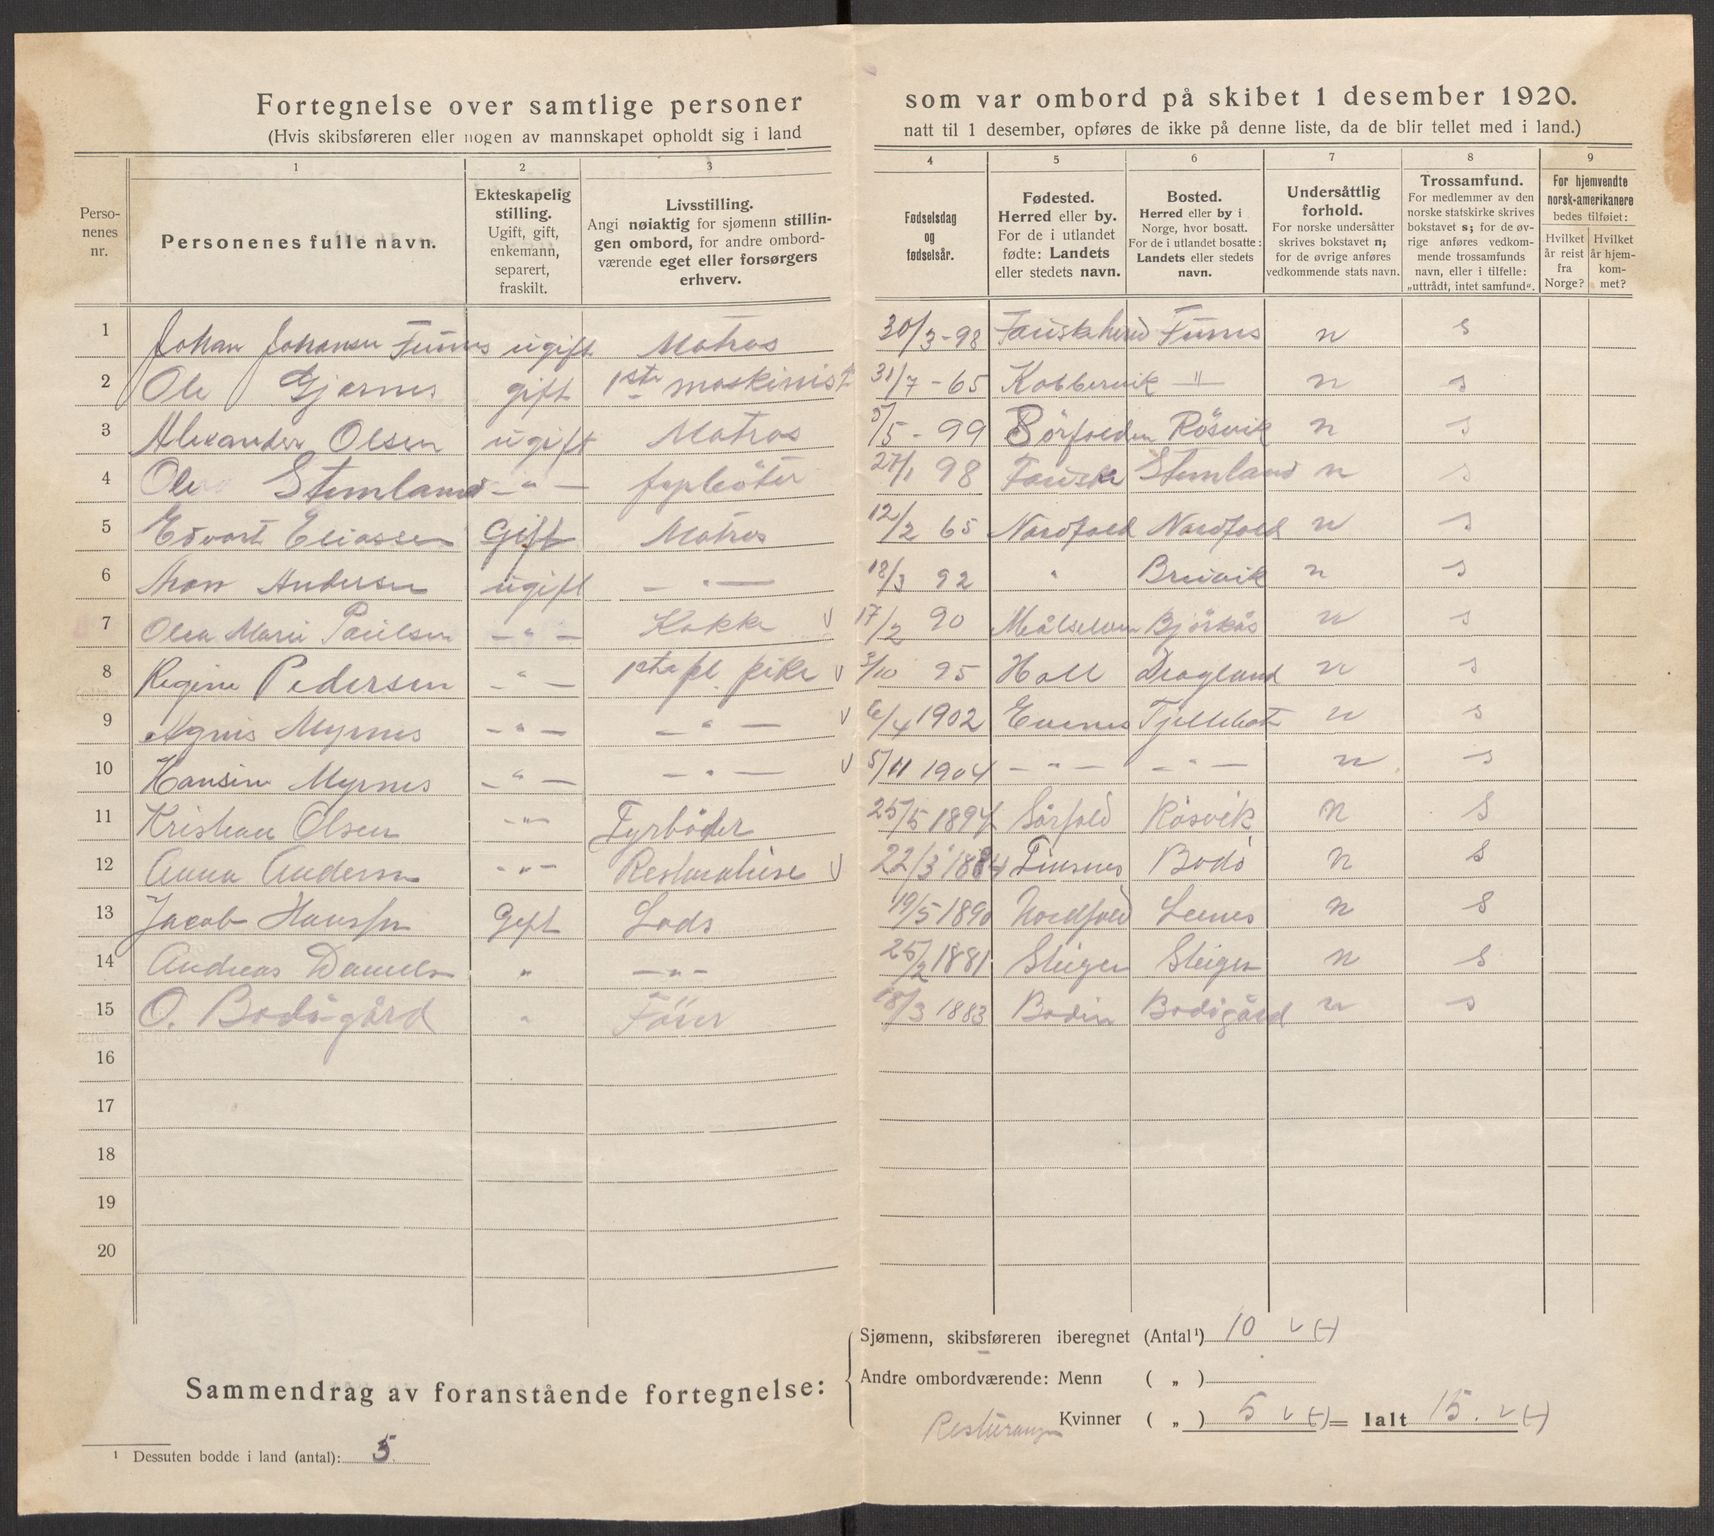 Fortegnelse over samtlige personer som var ombord på skibet 1 desember 1920.
(Hvis skibsføreren eller nogen av mannskapet opholdt sig i land natt til 1 desember, opføres de ikke på denne liste, da de blir tellet med i land.)
1 2 3 4 5 6 7 8 9
Perso-
nenes
nr.
Personenes fulle navn.
Ekteskapelig
stilling.
Ugift, gift,
enkemann,
separert,
fraskilt.
Livsstilling.
Angi nøiaktig for sjømenn stillin-
gen ombord, for andre ombord-
værende eget eller forsørgers
erhverv.
Fødselsdag
og
fødselsår.
Fødested.
Herred eller by.
For de i utlandet
fødte: Landets
eller stedets navn.
Bosted.
Herred eller by i
Norge, hvor bosatt.
For de i utlandet bosatte:
Landets eller stedets
navn.
Undersåttlig
forhold.
For norske undersåtter
skrives bokstavet n;
for de øvrige anføres
vedkommende stats navn.
Trossamfund.
For medlemmer av den
norske statskirke skrives
bokstavet s; for de øv-
rige anføres vedkom-
mende trossamfunds
navn, eller i tilfelle:
„uttrådt, intet samfund".
For hjemvendte
norsk-amerikanere
bedes tilføiet:
Hvilket
år reist
fra
Norge?
Hvilket
år hjem-
kom-
met?
1 Johan Johansen Funes ugift Matros 30/3-98 Fauskherred Funes n s
2 Ole Gjernes gift 1ste maskinist 31/7-65 Kobbervik " n s
3 Alexander Olsen ugift Matros 5/5-99 Sörfolden Rösvik n s
4 Stemland -"- fyrböter 27/1 98 Fauske Stemland n s
5 Edvart Eliassen Gift Matros 12/2 65 Nordfold Nordfold n s
6 Andersen ugift -"- 18/3 92 " n s
7 Olea Marie Paulsen -"- Kokke v 17/2 90 Målselven Bjórkås n s
8 Regine Pedersen -"- 1ste pl. pike v 3/10 95 Holl Dragland n s
9 Agnis Myrnes -"- -"- v 6/4 1902 Evenes Tjellebot n s
10 Hansine Myrnes -"- -"- v 5/11 1904 -"- -"- n s
11 Kristian Olsen -"- Fyrböder 25/5 1894 Sörfold Rösvik n s
12 Anna Andersen -"- v 22/3 1884 Finsnes Bodö n s
13 Jacob Hanssen Gift Lods 19/5 1890 Nordfold Leines n s
14 Andreas " -"- 25/2 1881 Steigen Steigen n s
15 O. Bodögård " Förer 18/3 1883 Bodin Bodögård n s
16
17
18
19
20
Sammendrag av foranstående fortegnelse:
Sjømenn, skibsføreren iberegnet (Antal¹) 10 v (-)
Andre ombordværende: Menn ( „ )
Kvinner ( „ ) 5 v (-) = Ialt 15. v (-)
¹ Dessuten bodde i land (antal): 5.